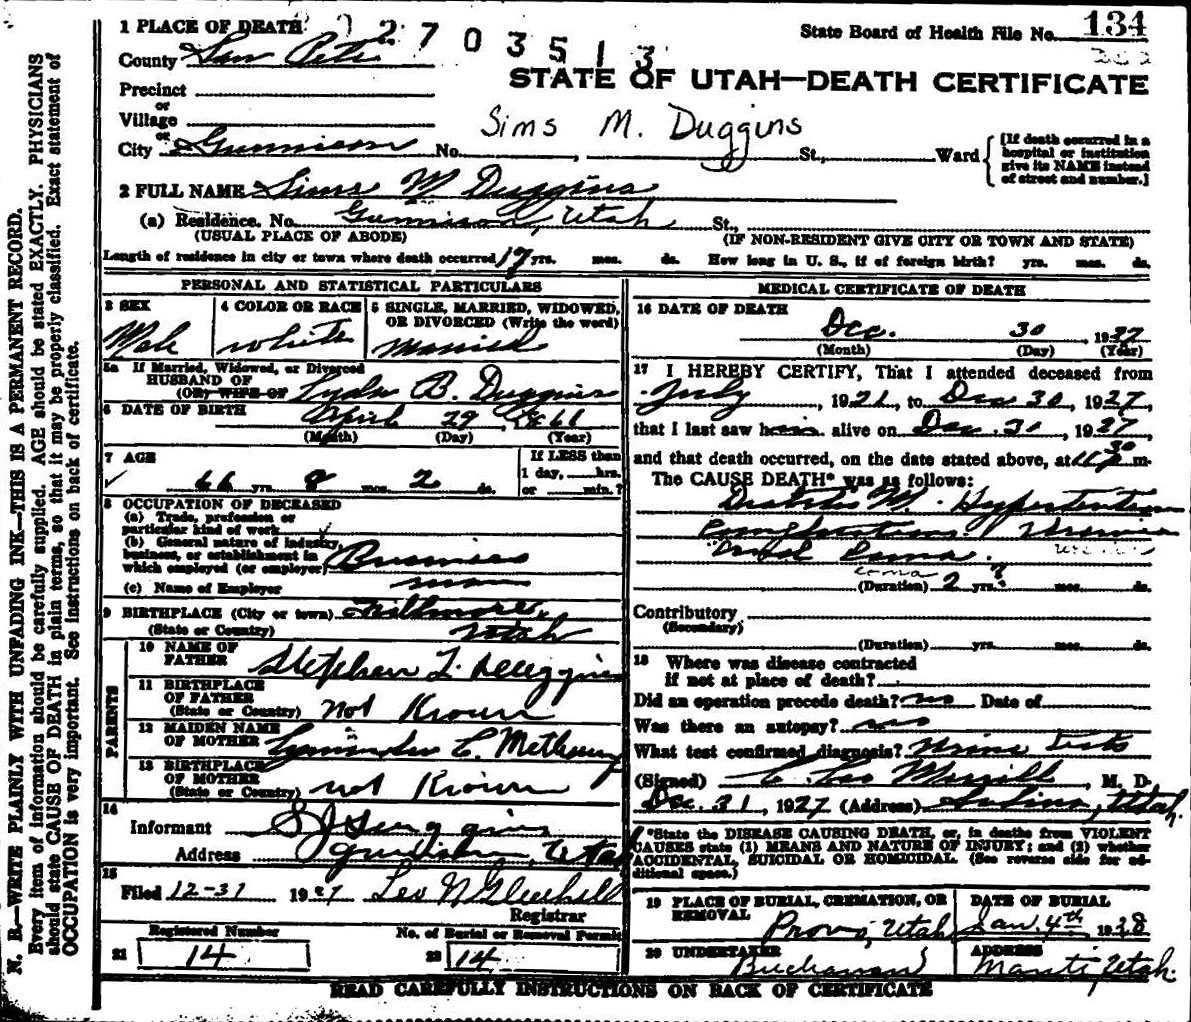 1 PLACE OF DEATH
2703513
State Board of Health File No. 134
County San Pete
STATE OF UTAH—DEATH CERTIFICATE
Precinct
or
Village
or
Sims M. Duggins
City Gunnison No. , St., Ward
[If death occurred in a hospital or institution give its NAME instead of street and number.]
2 FULL NAME Sims M Duggins
(a) Residence. No. Gunnison, Utah St.,
(USUAL PLACE OF ABODE) (IF NON-RESIDENT GIVE CITY OR TOWN AND STATE)
Length of residence in city or town where death occurred 17 yrs. mos. ds. How long in U. S., if of foreign birth? yrs. mos. ds.
PERSONAL AND STATISTICAL PARTICULARS
3 SEX
Male
4 COLOR OR RACE
White
5 SINGLE, MARRIED, WIDOWED, OR DIVORCED (Write the word)
Married
5a If Married, Widowed, or Divorced
HUSBAND OF
(OR) WIFE OF Lydia B. Duggins
6 DATE OF BIRTH April 29 1861
(Month) (Day) (Year)
7 AGE
66 yrs. 8 mos. 2 ds.
If LESS than
1 day, hrs.
or min.?
8 OCCUPATION OF DECEASED
(a) Trade, profession or
particular kind of work
(b) General nature of industry,
business, or establishment in
which employed (or employer) Business
man
(c) Name of Employer
9 BIRTHPLACE (City or town) Fillmore,
(State or Country) Utah
PARENTS
10 NAME OF
FATHER Stephen Duggins
11 BIRTHPLACE
OF FATHER
(State or Country) Not Known
12 MAIDEN NAME
OF MOTHER C.
13 BIRTHPLACE
OF MOTHER
(State or Country) not Known
14
Informant
Address Gunnison, Utah
15
Filed 12-31 1927 Leo N Gledhill
Registrar
Registered Number
21 14
No. of Burial or Removal Permit
22 14
MEDICAL CERTIFICATE OF DEATH
16 DATE OF DEATH
Dec. 30 , 1927
(Month) (Day) (Year)
17 I HEREBY CERTIFY, That I attended deceased from
July , 1921, to Dec 30, 1927,
that I last saw him alive on Dec. 30, 1927
and that death occurred, on the date stated above, at 11 30 p m.
The CAUSE DEATH* was as follows:
Diabetis M. Hypertention
Uremia
Coma.
coma
(Duration) 2 yrs.? mos. ds.
Contributory
(Secondary)
(Duration) yrs. mos. ds.
18 Where was disease contracted
if not at place of death?
Did an operation precede death? no Date of
Was there an autopsy? no
What test confirmed diagnosis? Urine Tests
(Signed) C. Leo Merrill , M. D.
Dec. 31, 1927 (Address) Salina, Utah.
*State the DISEASE CAUSING DEATH, or, in deaths from VIOLENT
CAUSES state (1) MEANS AND NATURE OF INJURY; and (2) whether
ACCIDENTAL, SUICIDAL OR HOMICIDAL. (See reverse side for additional space.)
19 PLACE OF BURIAL, CREMATION, OR
REMOVAL
Provo, Utah
DATE OF BURIAL
Jan. 4th 1928
20 UNDERTAKER
Buchanan
ADDRESS
Manti, Utah.
READ CAREFULLY INSTRUCTIONS ON BACK OF CERTIFICATE
N. B.—WRITE PLAINLY WITH UNFADING INK—THIS IS A PERMANENT RECORD.
Every item of information should be carefully supplied. AGE should be stated EXACTLY. PHYSICIANS
should state CAUSE OF DEATH in plain terms, so that it may be properly classified. Exact statement of
OCCUPATION is very important. See instructions on back of certificate.